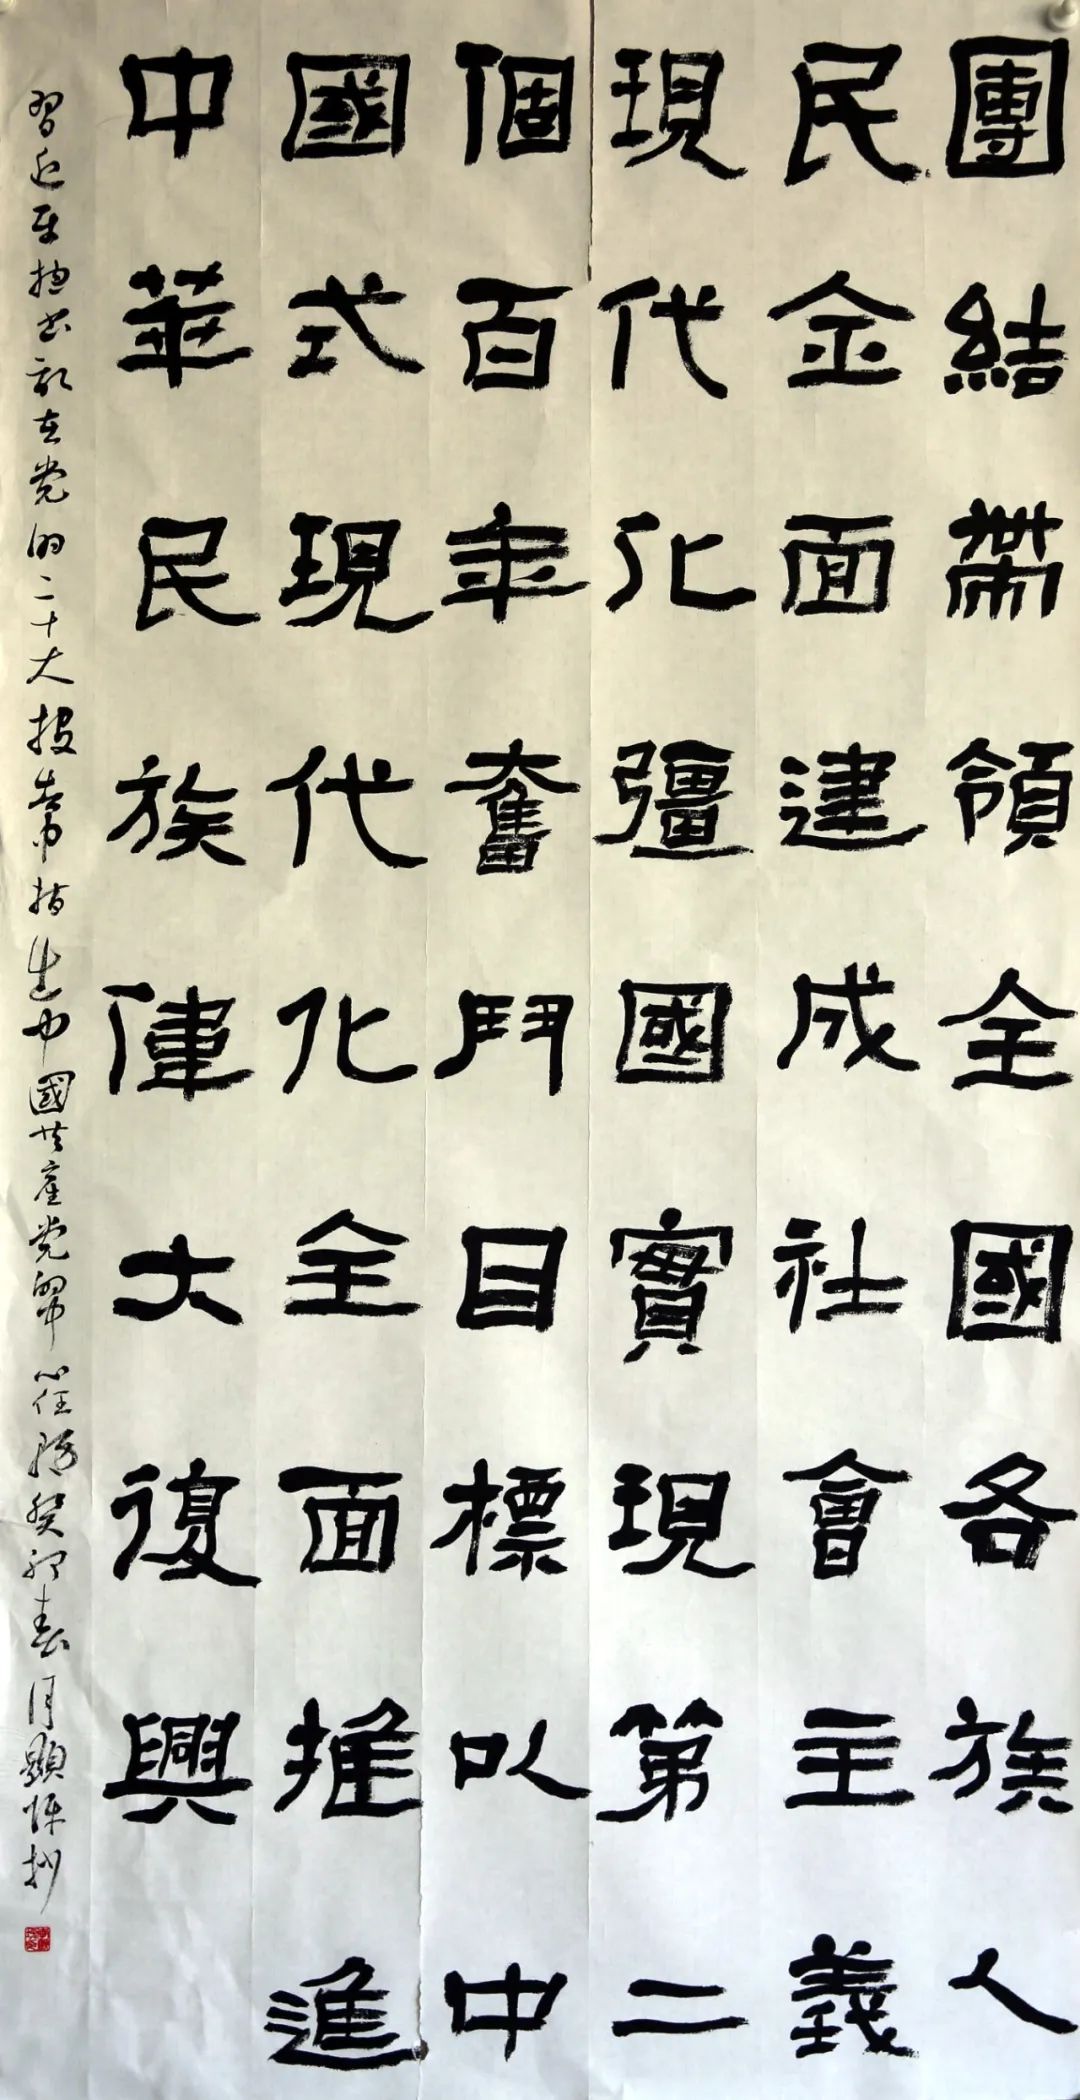 團結帶領全國各族人
民全面建成社會主義
現代化彊國實現第二
個百年奮鬥目標以中
國式現代化全面推進
中華民族偉大復興
習近平總書記在党的二十大報告中指出中國共產党的中心任務癸卯春月顯
抄